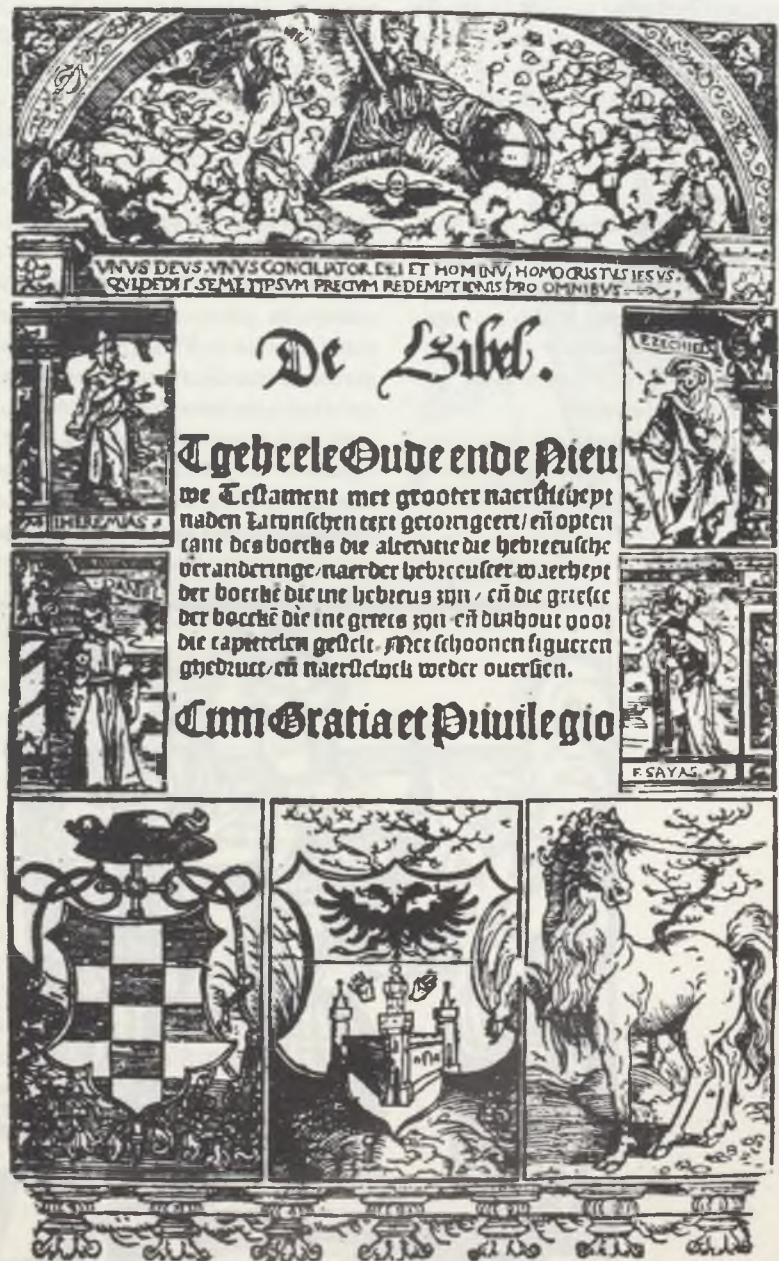 VNVS DEVS VNVS CONCILIATOR DEI ET HOMINV, HOMO CRISTVS IESVS.
QVI DEDIT SEMETIPSVM PRECIVM REDEMPTIONIS PRO OMNIBVS
De Bibel.
IHEREMIAS
EZECHIEL
Tgeheele Oude ende Nieu
we Testament met grooter naersticheyt
naden Latynschen text gecorrigeert/ en̄ opten
cant des boecks die alteratie die hebreeusche
veranderinge/ naerder hebreeuscer waerheyt
der boeckē die int hebreus zyn/ en̄ die griecse
der boeckē die int griecs zyn/ en̄ dinhout voor
die capittelen gestelt. Met schoonen figueren
ghedruct/ en̄ naerstelijck weder ouersien.
Cum Gratia et Priuilegio
DANIEL
ESAYAS